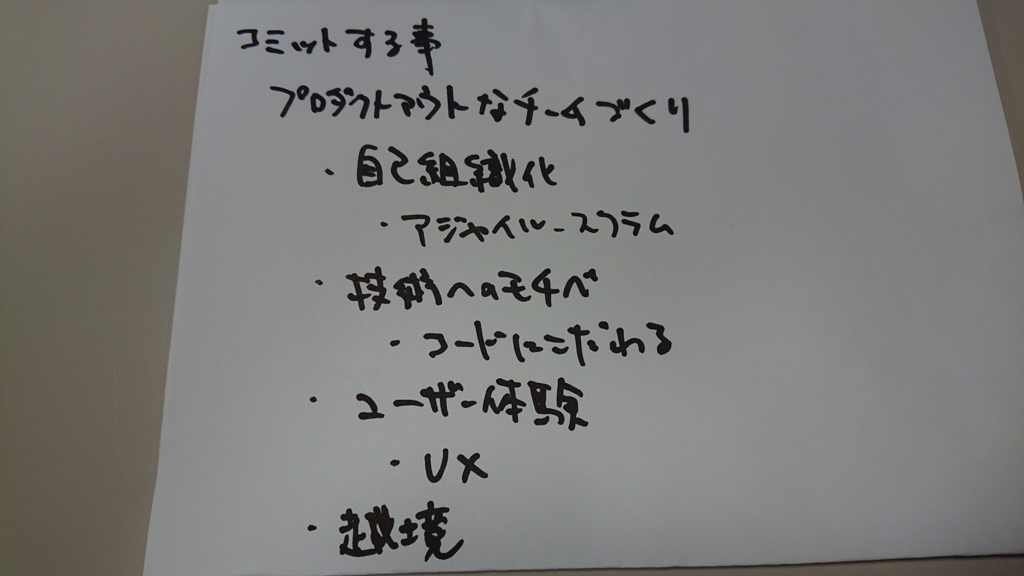 コミットする事
プロダクトアウトなチームづくり
・自己組織化
・アジャイル-スクラム
・技術へのモチベ
・コードにこだわる
・ユーザー体験
・UX
・越境